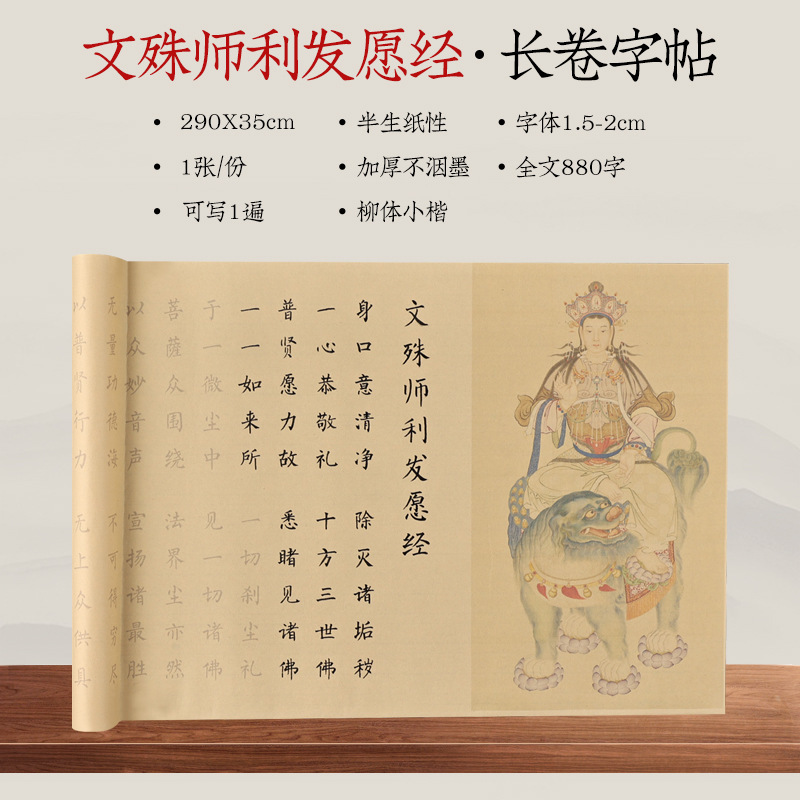 文殊师利发愿经·长卷字帖
• 290X35cm • 半生纸性 • 字体1.5-2cm
• 1张/份 • 加厚不洇墨 • 全文880字
• 可写1遍 • 柳体小楷
文殊师利发愿经
身口意清净 除灭诸垢秽
一心恭敬礼 十方三世佛
普贤愿力故 悉睹见诸佛
一一如来所 一切刹尘礼
于一微尘中 见一切诸佛
菩萨众围绕 法界尘亦然
以众妙音声 宣扬诸最胜
无量功德海 不可得穷尽
以普贤行力 无上众供具